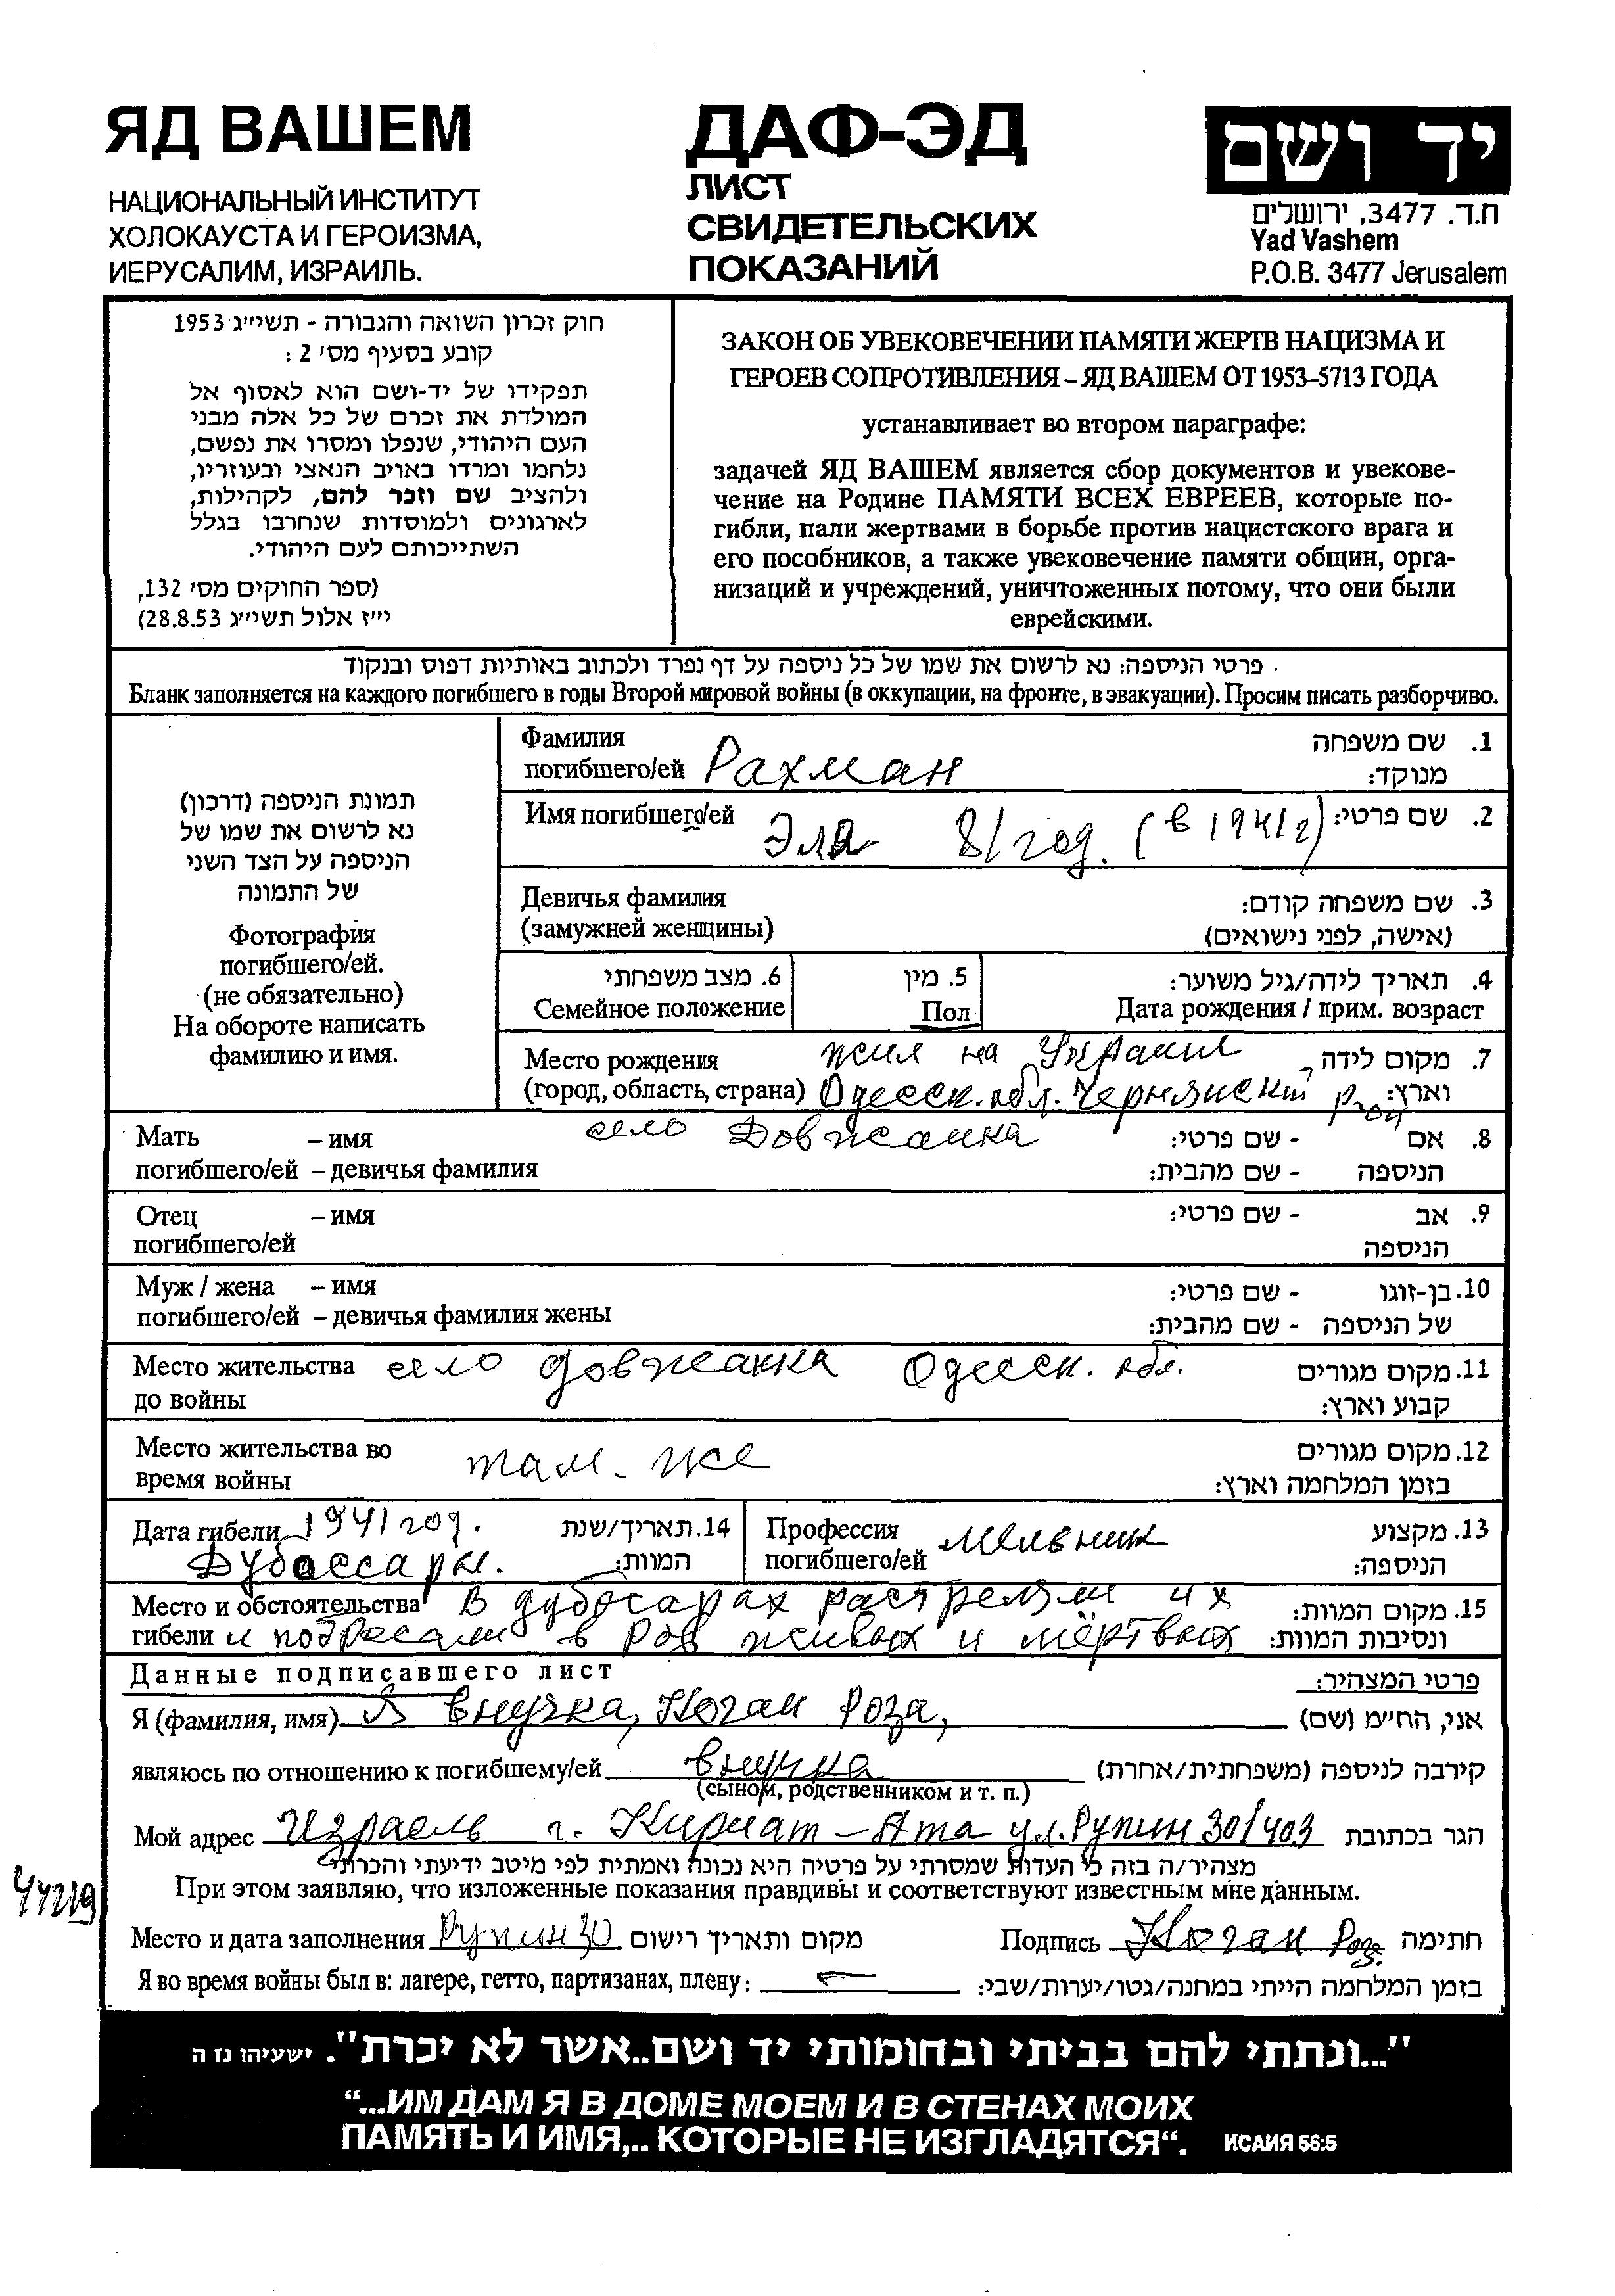 ЯД ВАШЕМ
НАЦИОНАЛЬНЫЙ ИНСТИТУТ
ХОЛОКАУСТА И ГЕРОИЗМА,
ИЕРУСАЛИМ, ИЗРАИЛЬ.
ДАФ-ЭД
ЛИСТ
СВИДЕТЕЛЬСКИХ
ПОКАЗАНИЙ
יד ושם
ת.ד. 3477, ירושלים
Yad Vashem
P.O.B. 3477 Jerusalem
חוק זכרון השואה והגבורה - תשי״ג 1953
קובע בסעיף מס׳ 2 :
תפקידו של יד-ושם הוא לאסוף אל
המולדת את זכרם של כל אלה מבני
העם היהודי, שנפלו ומסרו את נפשם,
נלחמו ומרדו באויב הנאצי ובעוזריו,
ולהציב שם וזכר להם, לקהילות,
לארגונים ולמוסדות שנחרבו בגלל
השתייכותם לעם היהודי.
(ספר החוקים מס׳ 132,
י״ז אלול תשי״ג 28.8.53)
ЗАКОН ОБ УВЕКОВЕЧЕНИИ ПАМЯТИ ЖЕРТВ НАЦИЗМА И
ГЕРОЕВ СОПРОТИВЛЕНИЯ – ЯД ВАШЕМ ОТ 1953-5713 ГОДА
устанавливает во втором параграфе:
задачей ЯД ВАШЕМ является сбор документов и увекове-
чение на Родине ПАМЯТИ ВСЕХ ЕВРЕЕВ, которые по-
гибли, пали жертвами в борьбе против нацистского врага и
его пособников, а также увековечение памяти общин, орга-
низаций и учреждений, уничтоженных потому, что они были
еврейскими.
פרטי הניספה: נא לרשום את שמו של כל ניספה על דף נפרד ולכתוב באותיות דפוס ובנקוד
Бланк заполняется на каждого погибшего в годы Второй мировой войны (в оккупации, на фронте, в эвакуации). Просим писать разборчиво.
תמונת הניספה (דרכון)
נא לרשום את שמו של
הניספה על הצד השני
של התמונה
Фотография
погибшего/ей.
(не обязательно)
На обороте написать
фамилию и имя.
Фамилия 1. שם משפחה
погибшего/ей Рахман מנוקד:
Имя погибшего/ей 2. שם פרטי:
Эля 81 год. (в 1941г)
Девичья фамилия 3. שם משפחה קודם:
(замужней женщины) (אישה, לפני נישואים)
6. מצב משפחתי 5. מין 4. תאריך לידה/גיל משוער:
Семейное положение Пол Дата рождения / прим. возраст
Место рождения жил на Украине 7. מקום לידה
(город, область, страна) Одесск. обл. Чернянский р-он וארץ:
село Довжанка
Мать – имя 8. אם - שם פרטי:
погибшего/ей – девичья фамилия הניספה - שם מהבית:
Отец – имя 9. אב - שם פרטי:
погибшего/ей הניספה
Муж / жена – имя 10. בן-זוגו - שם פרטי:
погибшего/ей – девичья фамилия жены של הניספה - שם מהבית:
Место жительства село Довжанка Одесск. обл. 11. מקום מגורים
до войны קבוע וארץ:
Место жительства во там. же 12. מקום מגורים
время войны בזמן המלחמה וארץ:
Дата гибели 1941 год. 14. תאריך/שנת
Дубоссары. המוות:
Профессия мельник 13. מקצוע
погибшего/ей הניספה:
Место и обстоятельства В дубосарах растреляли их 15. מקום המוות:
гибели и подбросали в ров живых и мёртвых ונסיבות המוות:
Данные подписавшего лист פרטי המצהיר:
Я (фамилия, имя) Я внучка, Коган Роза, אני, הח״מ (שם)
являюсь по отношению к погибшему/ей внучка קירבה לניספה (משפחתית/אחרת)
(сыном, родственником и т. п.)
Мой адрес Израель г. Кириат-Ата ул. Рупин 30/403 הגר בכתובת
מצהיר/ה בזה כי העדות שמסרתי על פרטיה היא נכונה ואמתית לפי מיטב ידיעתי והכרתי
При этом заявляю, что изложенные показания правдивы и соответствуют известным мне данным.
44219
Место и дата заполнения Рупин 30 מקום ותאריך רישום Подпись Коган Роз. חתימה
Я во время войны был в: лагере, гетто, партизанах, плену: בזמן המלחמה הייתי במחנה/גטו/יערות/שבי:
"...ונתתי להם בביתי ובחומותי יד ושם..אשר לא יכרת". ישעיהו נז ה
“...ИМ ДАМ Я В ДОМЕ МОЕМ И В СТЕНАХ МОИХ
ПАМЯТЬ И ИМЯ,.. КОТОРЫЕ НЕ ИЗГЛАДЯТСЯ“. ИСАИЯ 56:5